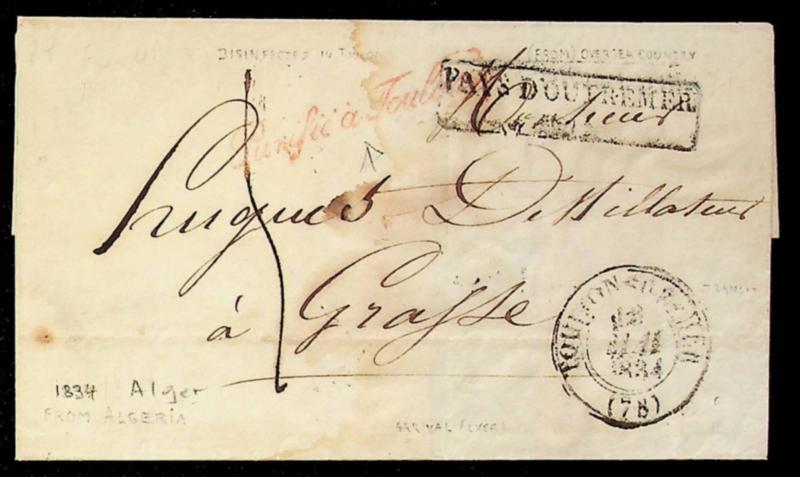 DISINFECTED IN TOULON
(FROM) OVERSEA COUNTRY
Purifié à Toulon
PAYS D'OUTREMER
Monsieur
Hugues Distillateur
à Grasse
TRANSIT
TOULON-SUR-MER
1834
(78)
1834 Alger
FROM ALGERIA
ARRIVAL